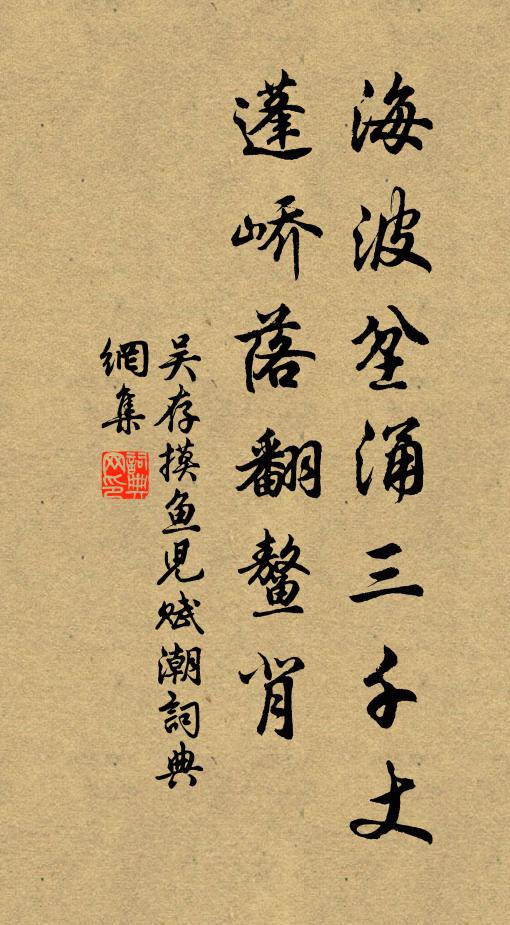 海波坌涌三千丈
蓬峤落翻鳌背
吴存摸鱼儿赋潮詞典
網集
詞典
网印